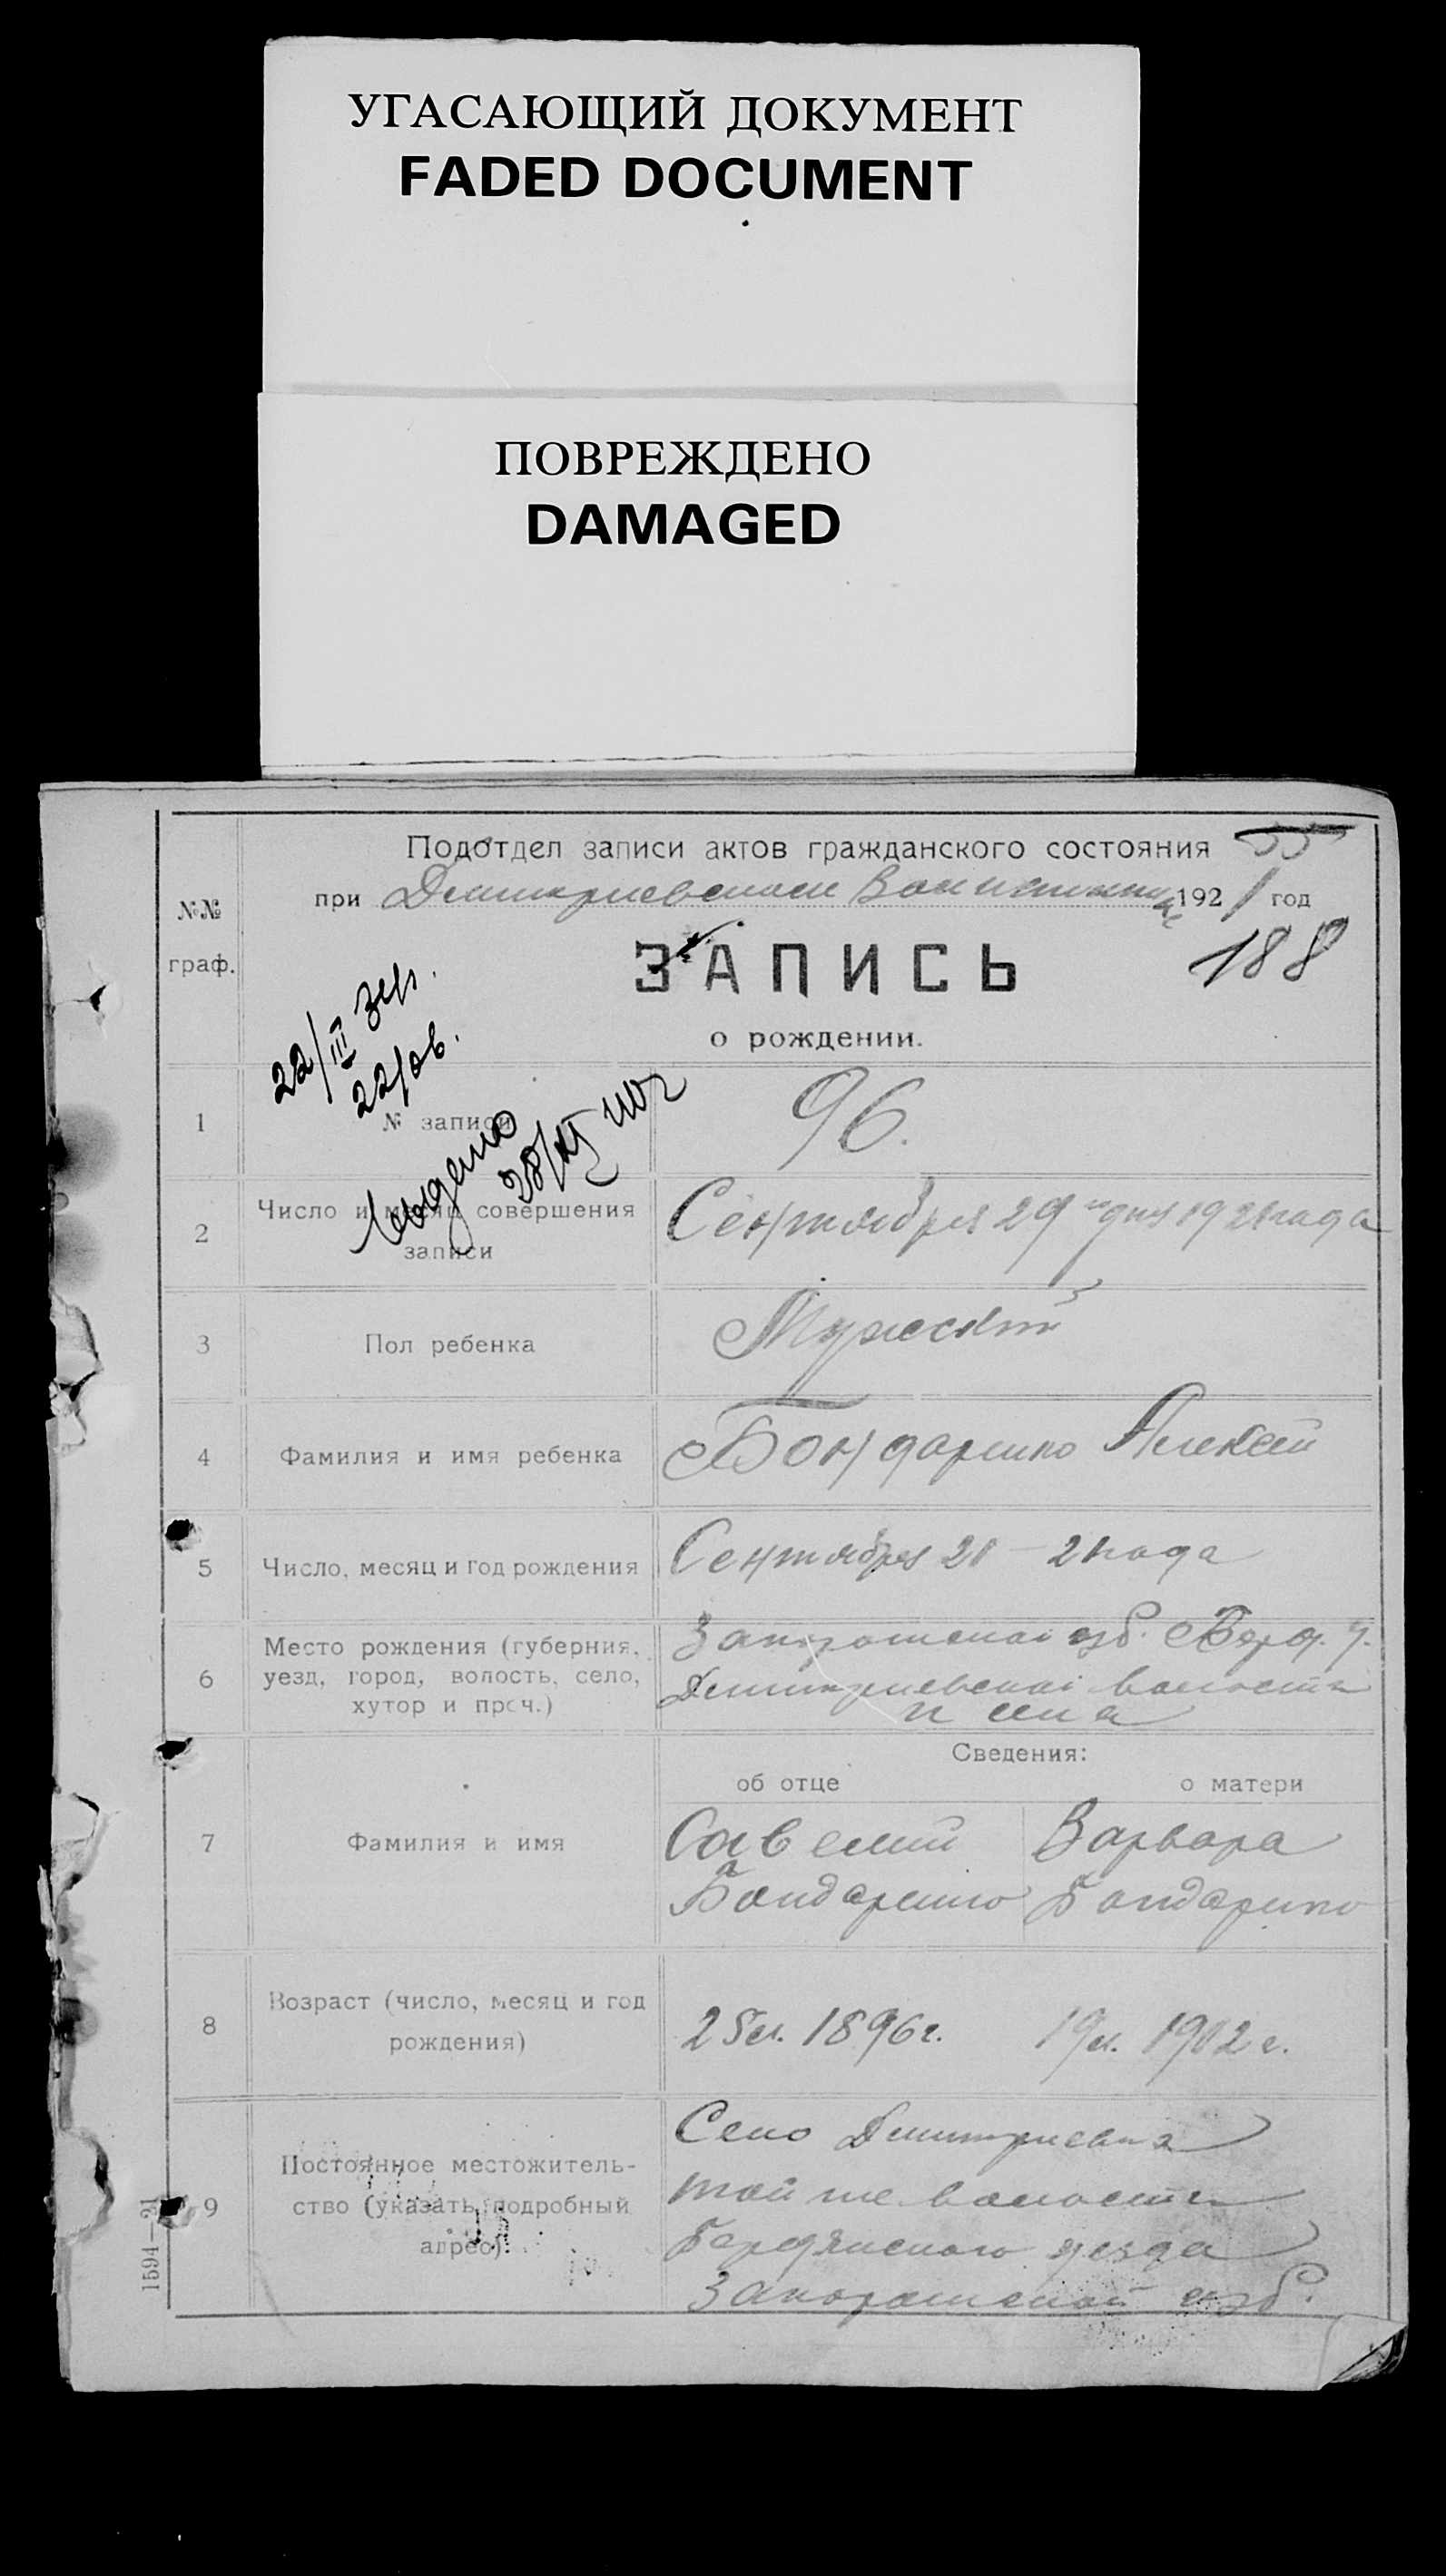 УГАСАЮЩИЙ ДОКУМЕНТ
FADED DOCUMENT
ПОВРЕЖДЕНО
DAMAGED
Подотдел записи актов гражданского состояния 55
при Дмитриевском 1921 год
№№
граф.
188
ЗАПИСЬ
о рождении.
22/III
22/
28/XI
1 № записи 96.
2 Число и месяц совершения записи Сентября 29 дня 1921 года
3 Пол ребенка Мужской
4 Фамилия и имя ребенка Бондаренко Алексей
5 Число, месяц и год рождения Сентября 21 – 21 года
6 Место рождения (губерния,
уезд, город, волость, село,
хутор и проч.)
Запорожской губ. Берд. у.
Дмитриевской волости
и села
Сведения:
об отце о матери
7 Фамилия и имя
Савелий Варвара
Бондаренко Бондаренко
8 Возраст (число, месяц и год
рождения)
25 л. 1896 г. 19 л. 1902 г.
9 Постоянное местожитель-
ство (указать подробный
адрес).
Село Дмитриевка
той же волости
Бердянского уезда
Запорожской губ.
1594—21